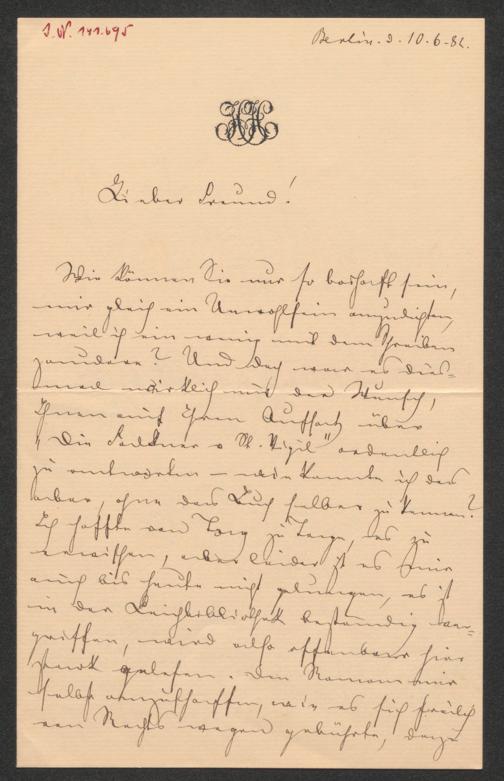 I.N. 141.695
Berlin. d. 10.6.82.
Lieber Freund!
Wie können Sie nur so boshaft sein,
mir gleich ein Unwohlsein anzudichten,
weil ich ein wenig mit dem Schreiben
zaudere? Und doch war es dies-
mal wirklich nur der Wunsch,
Ihnen auf Ihren Aufsatz über
"Die Falkner v. St. Vigil" ordentlich
zu antworten – wie konnte ich das
aber, ohne das Buch selber zu kennen?
Ich hoffte von Tag zu Tage, es zu
erwischen, aber leider ist es mir
auch bis heute nicht gelungen, es ist
in der Leihbibliothek beständig ver-
griffen, wird also offenbar hier
stark gelesen. Den Roman mir
selbst anzuschaffen, wie es sich freilich
von Rechts wegen gebührte, dazu